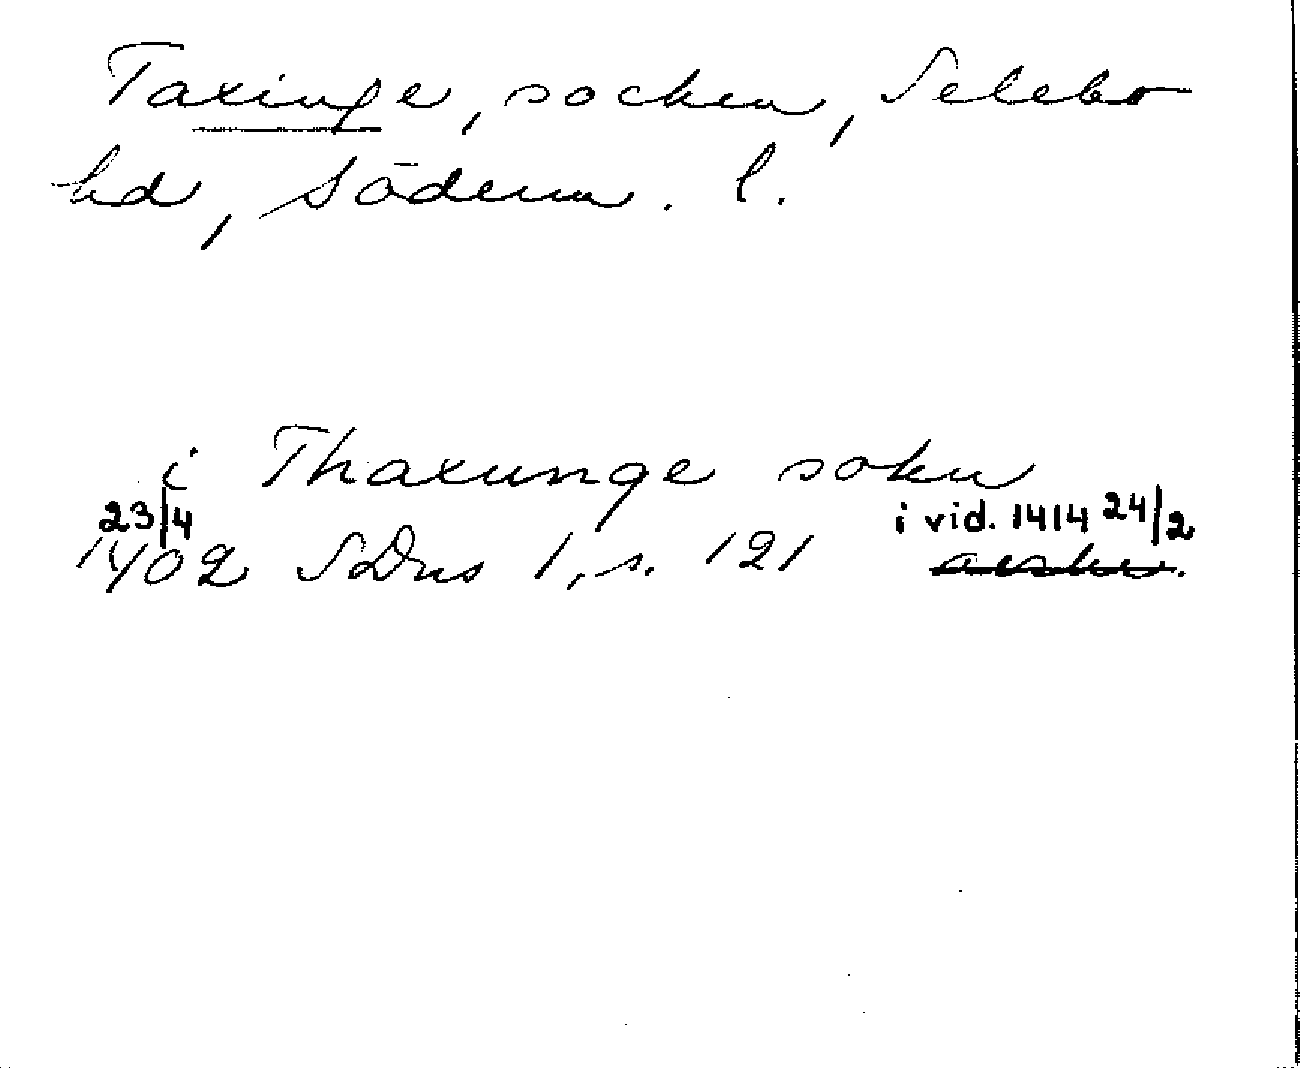 Taxinge, socken, Selebo
hd, Söderm. l.
i Thaxunge sokn
23/4 i vid. 1414 24/2
1402 SDns 1, s. 121 avskr.